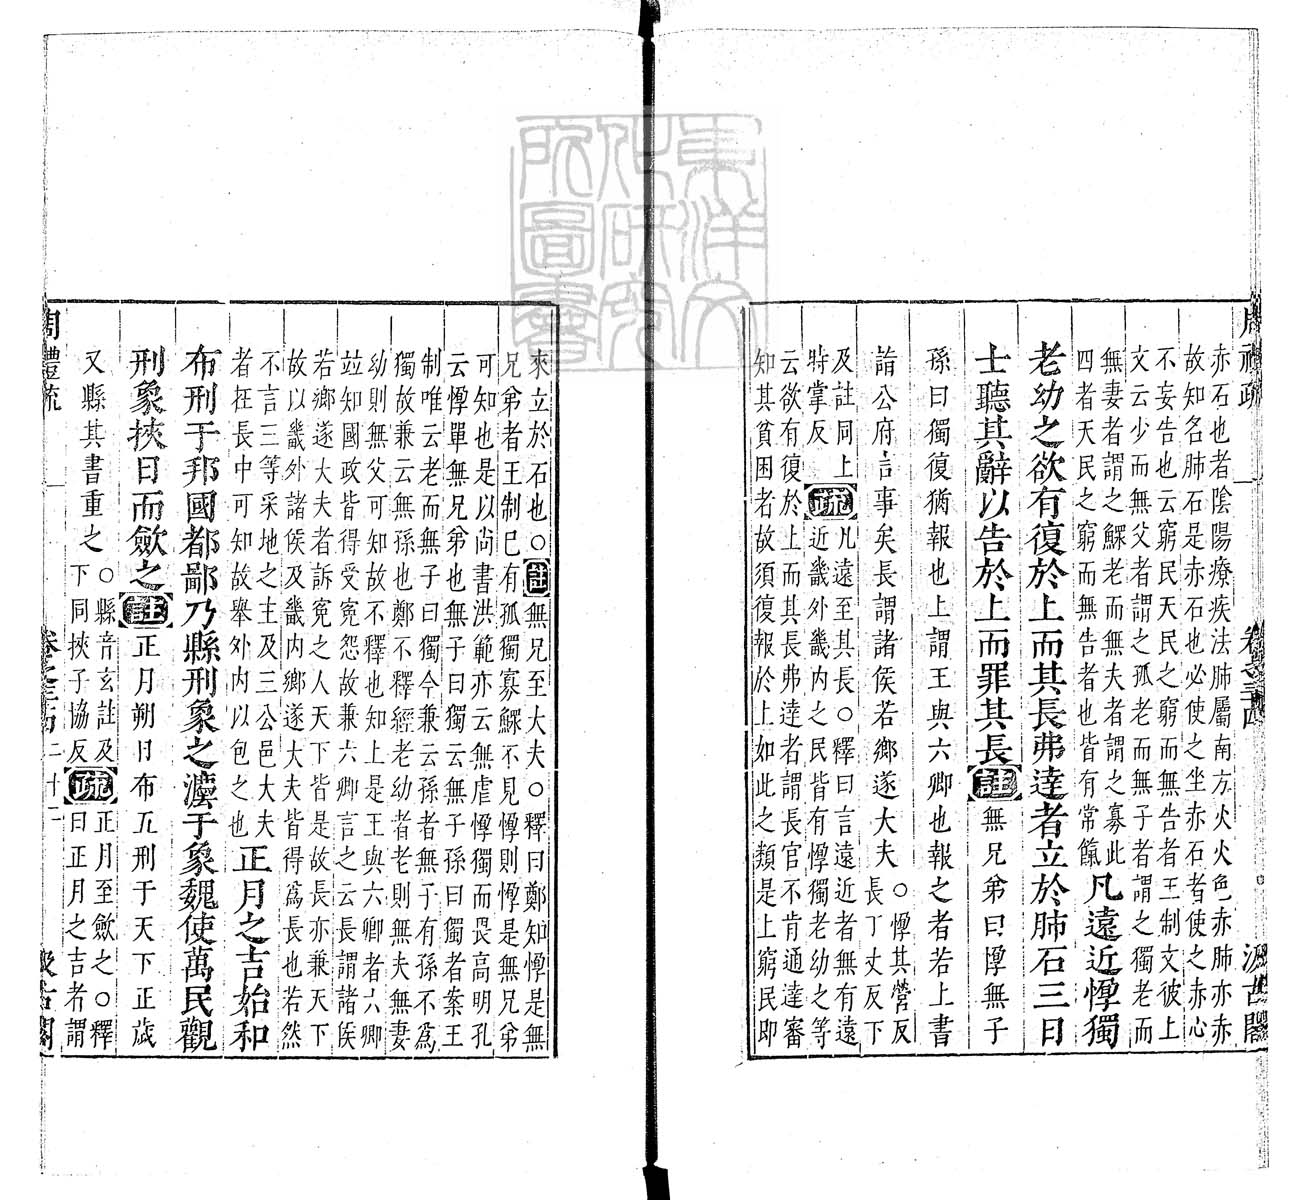 周禮疏 卷之三十四 汲古閣
赤石也者陰陽療疾法肺屬南方火火色赤肺亦赤
故知名肺石是赤石也必使之坐赤石者使之赤心
不妄告也云窮民天民之窮而無告者王制文彼上
文云少而無父者謂之孤老而無子者謂之獨老而
無妻者謂之鰥老而無夫者謂之寡此
四者天民之窮而無告者也皆有常餼
凡遠近惸獨
老幼之欲有復於上而其長弗達者立於肺石三日
士聽其辭以告於上而罪其長註無兄弟曰惸無子
孫曰獨復猶報也上謂王與六卿也報之者若上書
詣公府言事矣長謂諸侯若鄉遂大夫
○惸其營反
長丁丈反下
及註同上
時掌反
疏
凡遠至其長○釋曰言遠近者無有遠
近畿外畿內之民皆有惸獨老幼之等
云欲有復於上而其長弗達者謂長官不肯通達審
知其貧困者故須復報於上如此之類是上窮民即
來立於石也○註無兄至大夫○釋曰鄭知惸是無
兄弟者王制已有孤獨寡鰥不見惸則惸是無兄弟
可知也是以尚書洪範亦云無虐惸獨而畏高明孔
云惸單無兄弟也無子曰獨云無子孫曰獨者案王
制唯云老而無子曰獨今兼云孫者無子有孫不爲
獨故兼云無孫也鄭不釋經老幼者老則無夫無妻
幼則無父可知故不釋也知上是王與六卿者六卿
竝知國政皆得受寃怨故兼六卿言之云長謂諸侯
若鄉遂大夫者訴寃之人天下皆是故長亦兼天下
故以畿外諸侯及畿內鄉遂大夫皆得爲長也若然
不言三等采地之主及三公邑大夫
者在長中可知故舉外內以包之也
正月之吉始和
布刑于邦國都鄙乃縣刑象之灋于象魏使萬民觀
刑象挾日而歛之註正月朔日布五刑于天下正歲
又縣其書重之
○縣音玄註及
下同挾子協反
疏
正月至歛之○釋
曰正月之吉者謂
周禮疏 卷之三十四 二十二 汲古閣
東洋文
化研究
所圖書